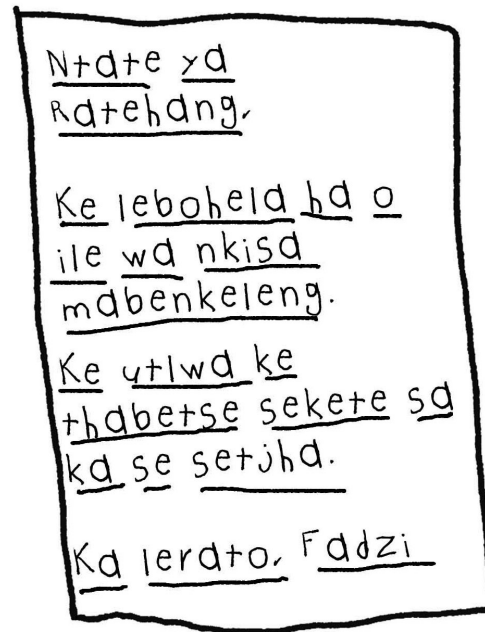 Ntate ya
Ratehang,
Ke lebohela ha o
ile wa nkisa
mabenkeleng.
Ke utlwa ke
thabetse sekete sa
ka se setjha.
Ka lerato, Fadzi